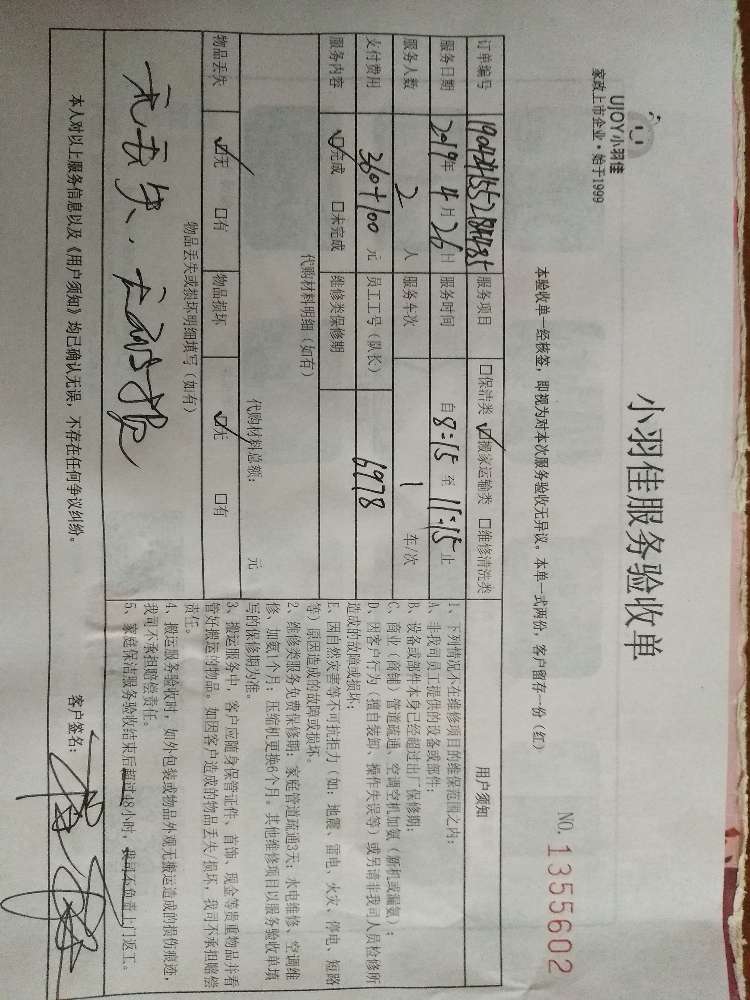 UJOY小羽佳
家政上市企业·始于1999
小羽佳服务验收单
NO. 1355602
本验收单一经核签，即视为对本次服务验收无异议。本单一式两份，客户留存一份（红）
订单编号
服务项目 □保洁类 ☑搬家运输类 □维修清洗类
服务日期 2019年 4月 26日 服务时间 自 8:15 至 11:15 止
服务人数 2 人 服务车次 1 车/次
支付费用 360+100 元 员工工号（队长） 6978
服务内容 ☑完成 □未完成 维修类保修期
代购材料明细（如有）
代购材料总额： 元
物品丢失 ☑无 □有 物品损坏 ☑无 □有
物品丢失或损坏明细填写（如有）
无丢失、无损坏
本人对以上服务信息以及《用户须知》均已确认无误，不存在任何争议纠纷。
客户签名：
用户须知
1、下列情况不在维修项目的维保范围之内：
A、非我司员工提供的设备或部件；
B、设备或部件本身已经超过出厂保修期；
C、商业（商铺）管道疏通、空调空机加氨（新机或漏氨）；
D、因客户行为（擅自装卸、操作失误等）或另请非我司人员检修所
造成的故障或损坏；
E、因自然灾害等不可抗拒力（如：地震、雷电、火灾、停电、短路
等）原因造成的故障或损坏。
2、维修类服务免费保修期：家庭管道疏通3天；水电维修、空调维
修、加氨1个月；压缩机更换6个月。其他维修项目以服务验收单填
写的保修期为准。
3、搬运服务中，客户应随身保管证件、首饰、现金等贵重物品并看
管好搬运的物品。如因客户造成的物品丢失/损坏，我司不承担赔偿
责任。
4、搬运服务验收时，如外包装或物品外观无搬运造成的损伤痕迹，
我司不承担赔偿责任。
5、家庭保洁服务验收结束后超过48小时，我司不负责上门返工。